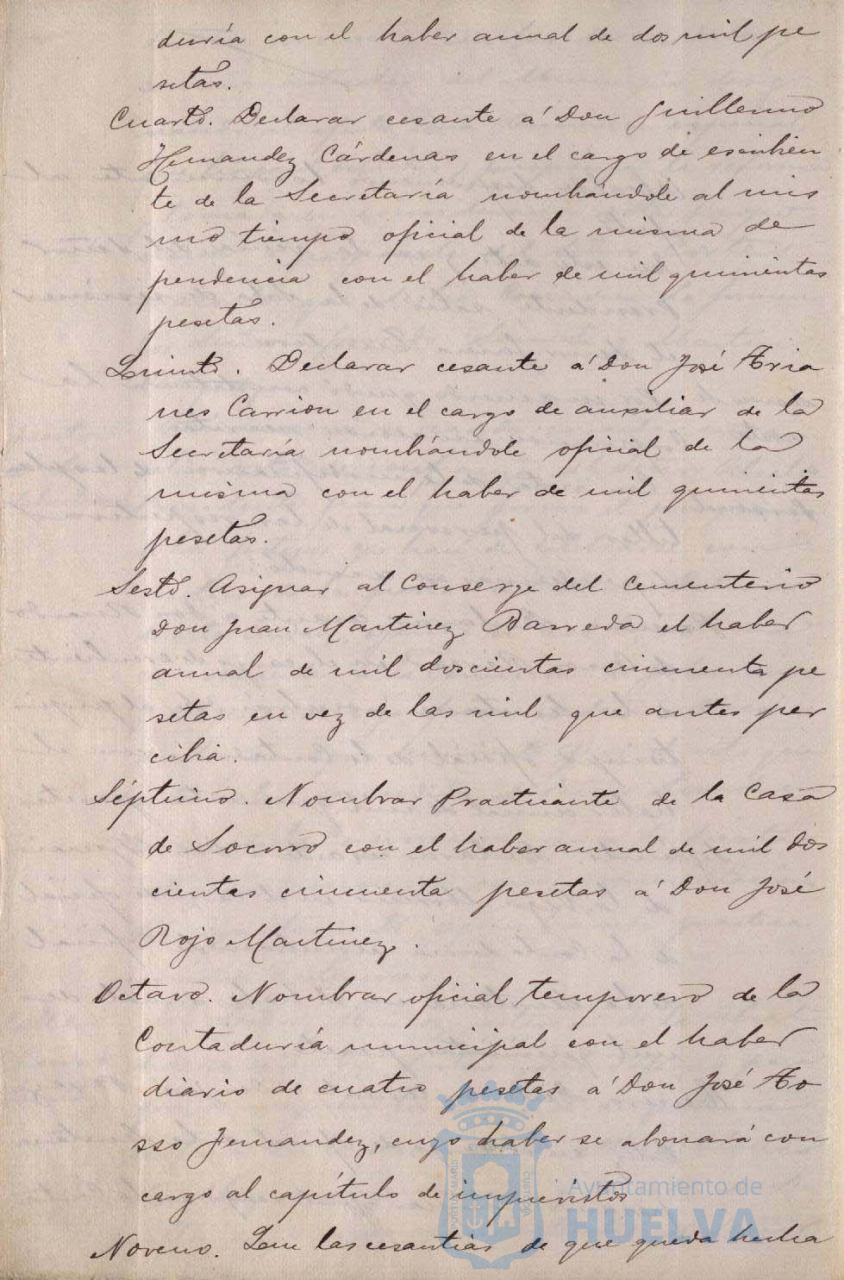 duría con el haber anual de dos mil pe
setas.
Cuarto. Declarar cesante á Don Guillermo
Hernandez Cárdenas en el cargo de escribien
te de la Secretaría nombrándole al mis
mo tiempo oficial de la misma de
pendencia con el haber de mil quinientas
pesetas.
Quinto. Declarar cesante á Don José Aria
nes Carrion en el cargo de auxiliar de la
Secretaría nombrándole oficial de la
misma con el haber de mil quinientas
pesetas.
Sesto. Asignar al Conserge del cementerio
Don Juan Martinez Barreda el haber
anual de mil doscientas cincuenta pe
setas en vez de las mil que antes per
cibia.
Séptimo. Nombrar Practicante de la Casa
de Socorro con el haber anual de mil dos
cientas cincuenta pesetas á Don José
Rojo Martinez.
Octavo. Nombrar oficial temporero de la
Contaduría municipal con el haber
diario de cuatro pesetas á Don José
Fernandez, cuyo haber se abonará con
cargo al capítulo de imprevistos
Noveno. Que las cesantias de que queda hecha
Ayuntamiento de
HUELVA